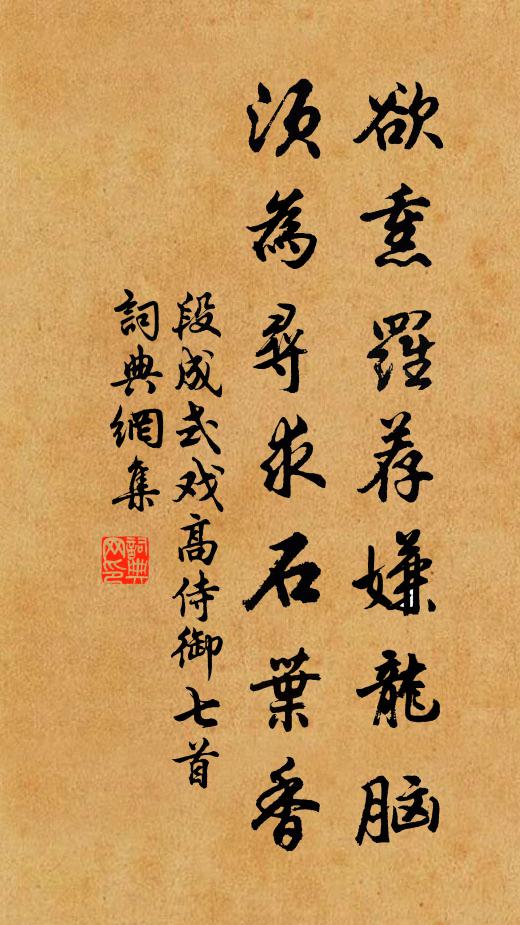 欲熏羅荐嫌龍脑
須為尋求石葉香
段成式戏高侍御七首
詞典網集
詞典网印